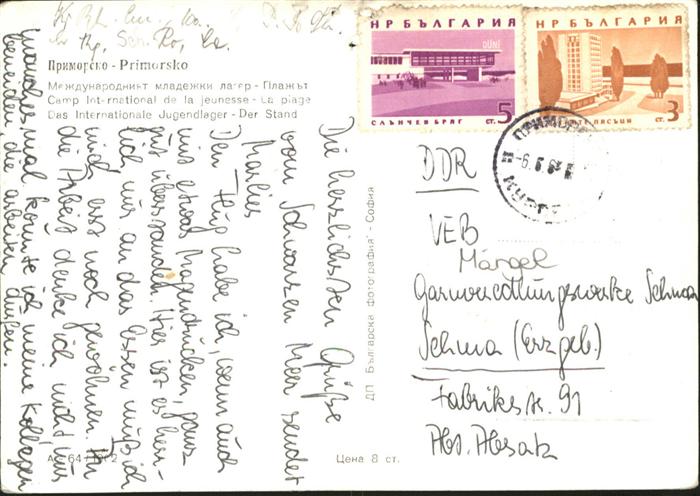 Приморско - Primorsko
Международният младежки лагер - Плажът
Camp International de la jeunesse - La plage
Das Internationale Jugendlager - Der Stand
Die herzlichsten Grüße
vom Schwarzen Meer sendet
Marlies
Den Flug habe ich, wenn auch
mit etwas Magendrücken, ganz
gut überstanden. Hier ist es herr-
lich nur an das Essen muß ich
mich erst noch gewöhnen. An
die Arbeit denke ich nicht nur
manches mal könnte ich meine Kollegen
beneiden die arbeiten dürfen.
ДП „Българска фотография" - София
Цена 8 ст.
НР БЪЛГАРИЯ
DÜNE
СЛЪНЧЕВ БРЯГ
ст. 5
НР БЪЛГАРИЯ
ПЯСЪЦИ
ст. 3
DDR
VEB
Märgel
Schma (Erzgeb.)
Fabrikstr. 91
Abt. Absatz